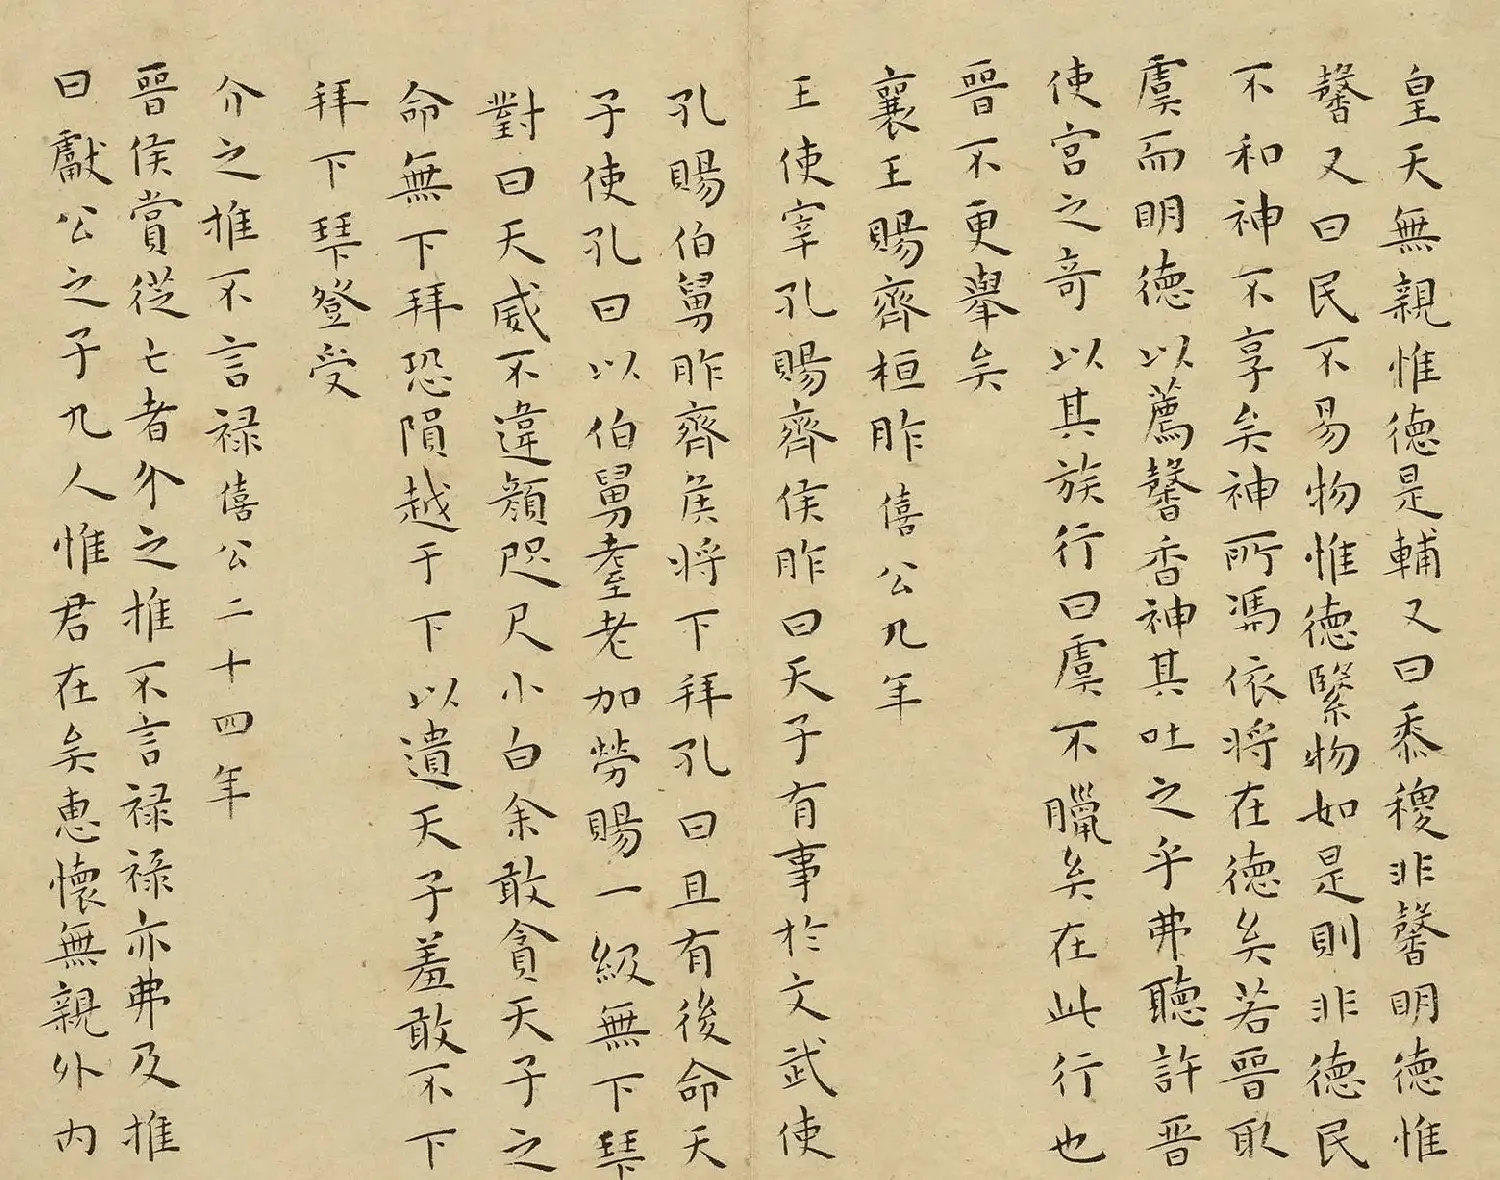 皇天無親惟德是輔又曰黍稷非馨明德惟
馨又曰民不易物惟德繄物如是則非德民
不和神不享矣神所馮依將在德矣若晉取
虞而明德以薦馨香神其吐之乎弗聽許晉
使宮之奇以其族行曰虞不臘矣在此行也
晉不更舉矣
襄王賜齊桓胙 僖公九年
王使宰孔賜齊侯胙曰天子有事於文武使
孔賜伯舅胙齊侯將下拜孔曰且有後命天
子使孔曰以伯舅耋老加勞賜一級無下拜
對曰天威不違顏咫尺小白余敢貪天子之
命無下拜恐隕越于下以遺天子羞敢不下
拜下拜登受
介之推不言祿 僖公二十四年
晉侯賞從亡者介之推不言祿祿亦弗及推
曰獻公之子九人惟君在矣惠懷無親外內